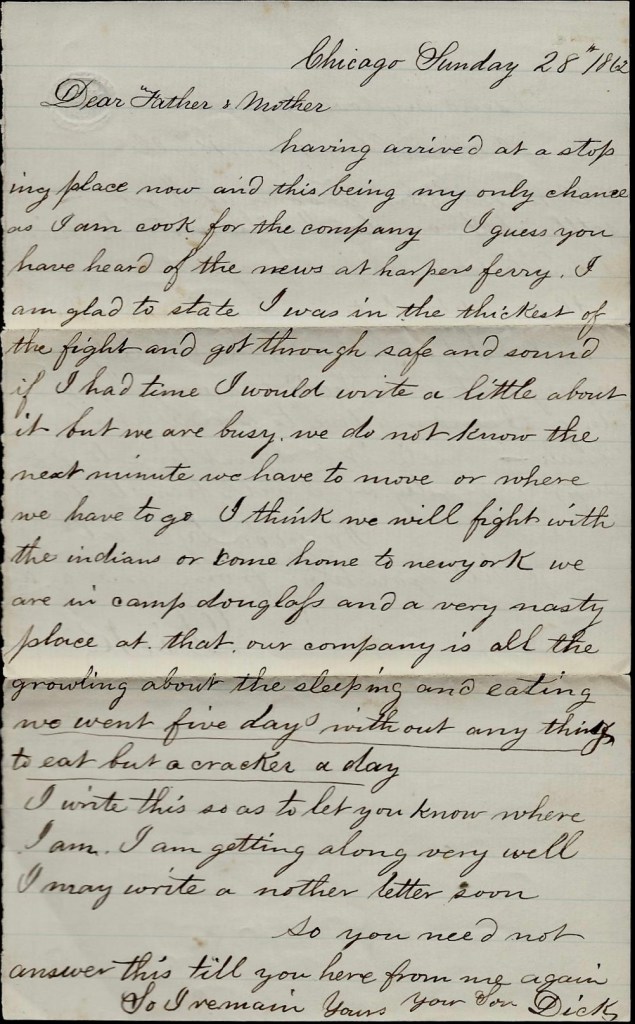 Chicago Sunday 28th 1862
Dear Father & Mother
having arrived at a stop
ing place now and this being my only chance
as I am cook for the company I guess you
have heard of the news at harpers ferry. I
am glad to state I was in the thickest of
the fight and got through safe and sound
if I had time I would write a little about
it but we are busy. we do not know the
next minute we have to move or where
we have to go I think we will fight with
the indians or come home to newyork we
are in camp douglass and a very nasty
place at that. our company is all the
growling about the sleeping and eating
we went five days without any thing
to eat but a cracker a day
I write this so as to let you know where
I am. I am getting along very well
I may write a nother letter soon
so you need not
answer this till you here from me again
So I remain Yours your Son Dick